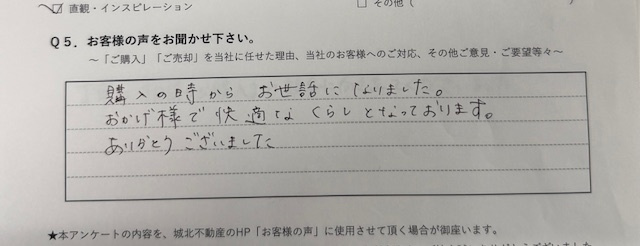 ☑ 直観・インスピレーション
□ その他（ ）
Q5. お客様の声をお聞かせ下さい。
～「ご購入」「ご売却」を当社に任せた理由、当社のお客様へのご対応、その他ご意見・ご要望等々～
購入の時から お世話になりました。
おかげ様で快適なくらしとなっております。
ありがとうございました
★本アンケートの内容を、城北不動産のHP「お客様の声」に使用させて頂く場合が御座います。